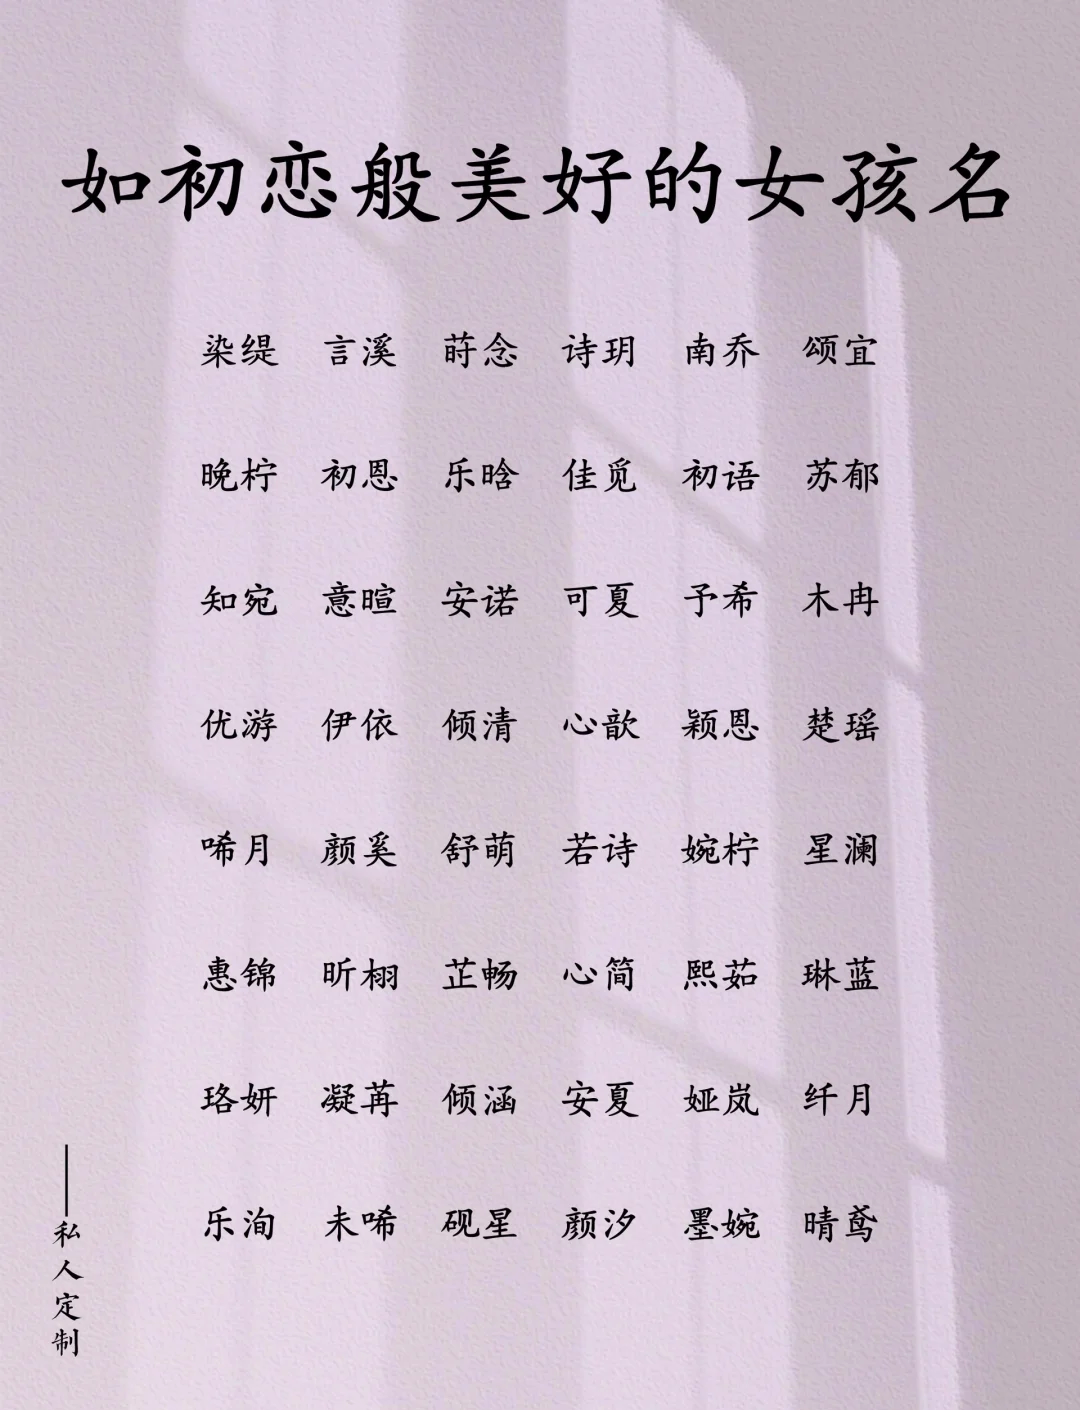 如初恋般美好的女孩名
染缇 言溪 莳念 诗玥 南乔 颂宜
晚柠 初恩 乐晗 佳觅 初语 苏郁
知宛 意暄 安诺 可夏 予希 木冉
优游 伊依 倾清 心歆 颖恩 楚瑶
唏月 颜奚 舒萌 若诗 婉柠 星澜
惠锦 昕栩 芷畅 心简 熙茹 琳蓝
珞妍 凝苒 倾涵 安夏 娅岚 纤月
乐洵 未唏 砚星 颜汐 墨婉 晴鸢
——私人定制